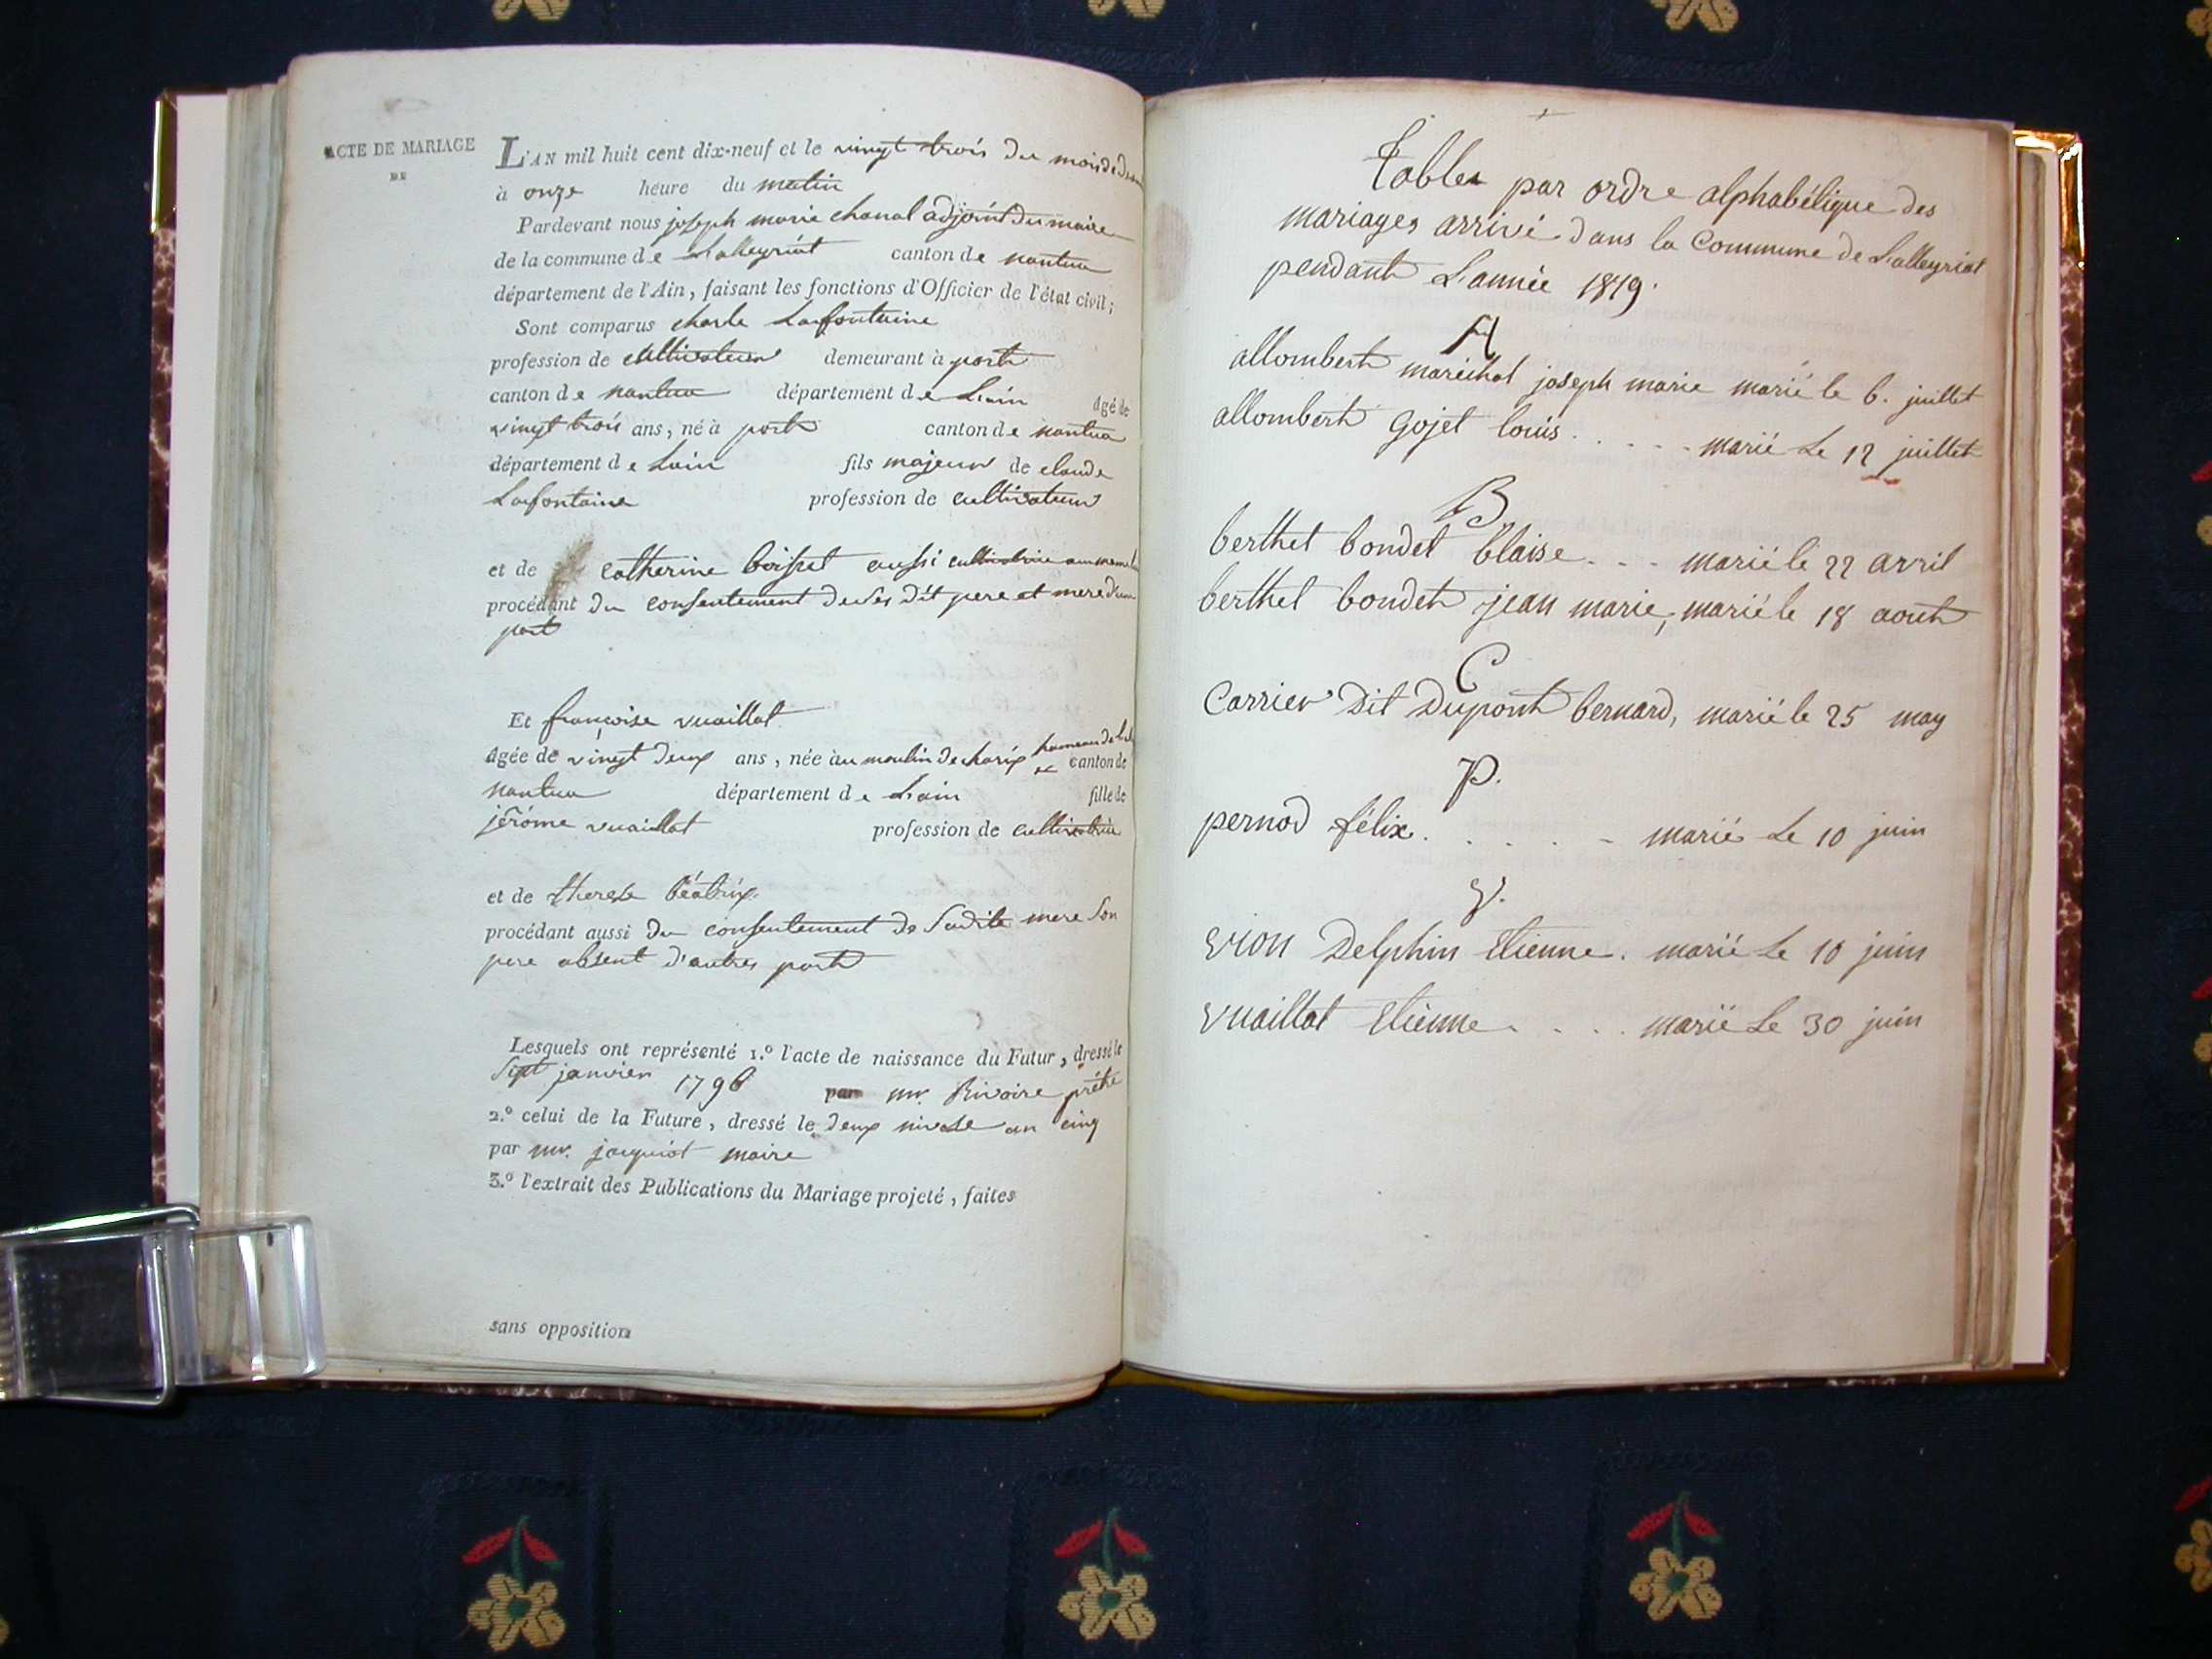 ACTE DE MARIAGE
DE
L'AN mil huit cent dix-neuf et le vingt trois du mois de
à onze heure du matin
Pardevant nous joseph marie chanal adjoint du maire
de la commune de Lalleyriat canton de nantua
département de l'Ain, faisant les fonctions d'Officier de l'état civil;
Sont comparus charle Lafontaine
profession de cultivateur demeurant à port
canton de nantua département de Lain âgé de
vingt trois ans, né à port canton de nantua
département de Lain fils majeur de claude
Lafontaine profession de cultivateur
et de catherine boisset aussi cultivatrice
procédant du consentement de ses dit pere et mere d'une
part
Et françoise vuaillat
âgée de vingt deux ans, née au moulin de charix hameau de canton de
nantua département de Lain fille de
jérôme vuaillat profession de cultivatrice
et de therese béatrix
procédant aussi du consentement de Sadite mere Son
pere absent d'autres part
Lesquels ont représenté 1.º l'acte de naissance du Futur, dressé le
Sept janvier 1796 par mr. Rivoire prêtre
2.º celui de la Future, dressé le deux nivose an cinq
par mr. jacquiot maire
3.º l'extrait des Publications du Mariage projeté, faites
sans opposition
Tables par ordre alphabétique des
mariages arrivé dans la Commune de Lalleyriat
pendant L'année 1819.
A
allombert maréchal joseph marie marié le 6. juillet
allombert Gojet louis . . . . . marié Le 12 juillet
B
berthet bondet blaise . . . marié le 22 avril
berthet bondet jean marie, marié le 18 aout
C
Carrier Dit Dupont bernard, marié le 25 may
P.
pernod félix . . . . . marié Le 10 juin
V.
vion Delphin Etienne . marié Le 10 juin
vuaillat Etienne . . . . marié Le 30 juin